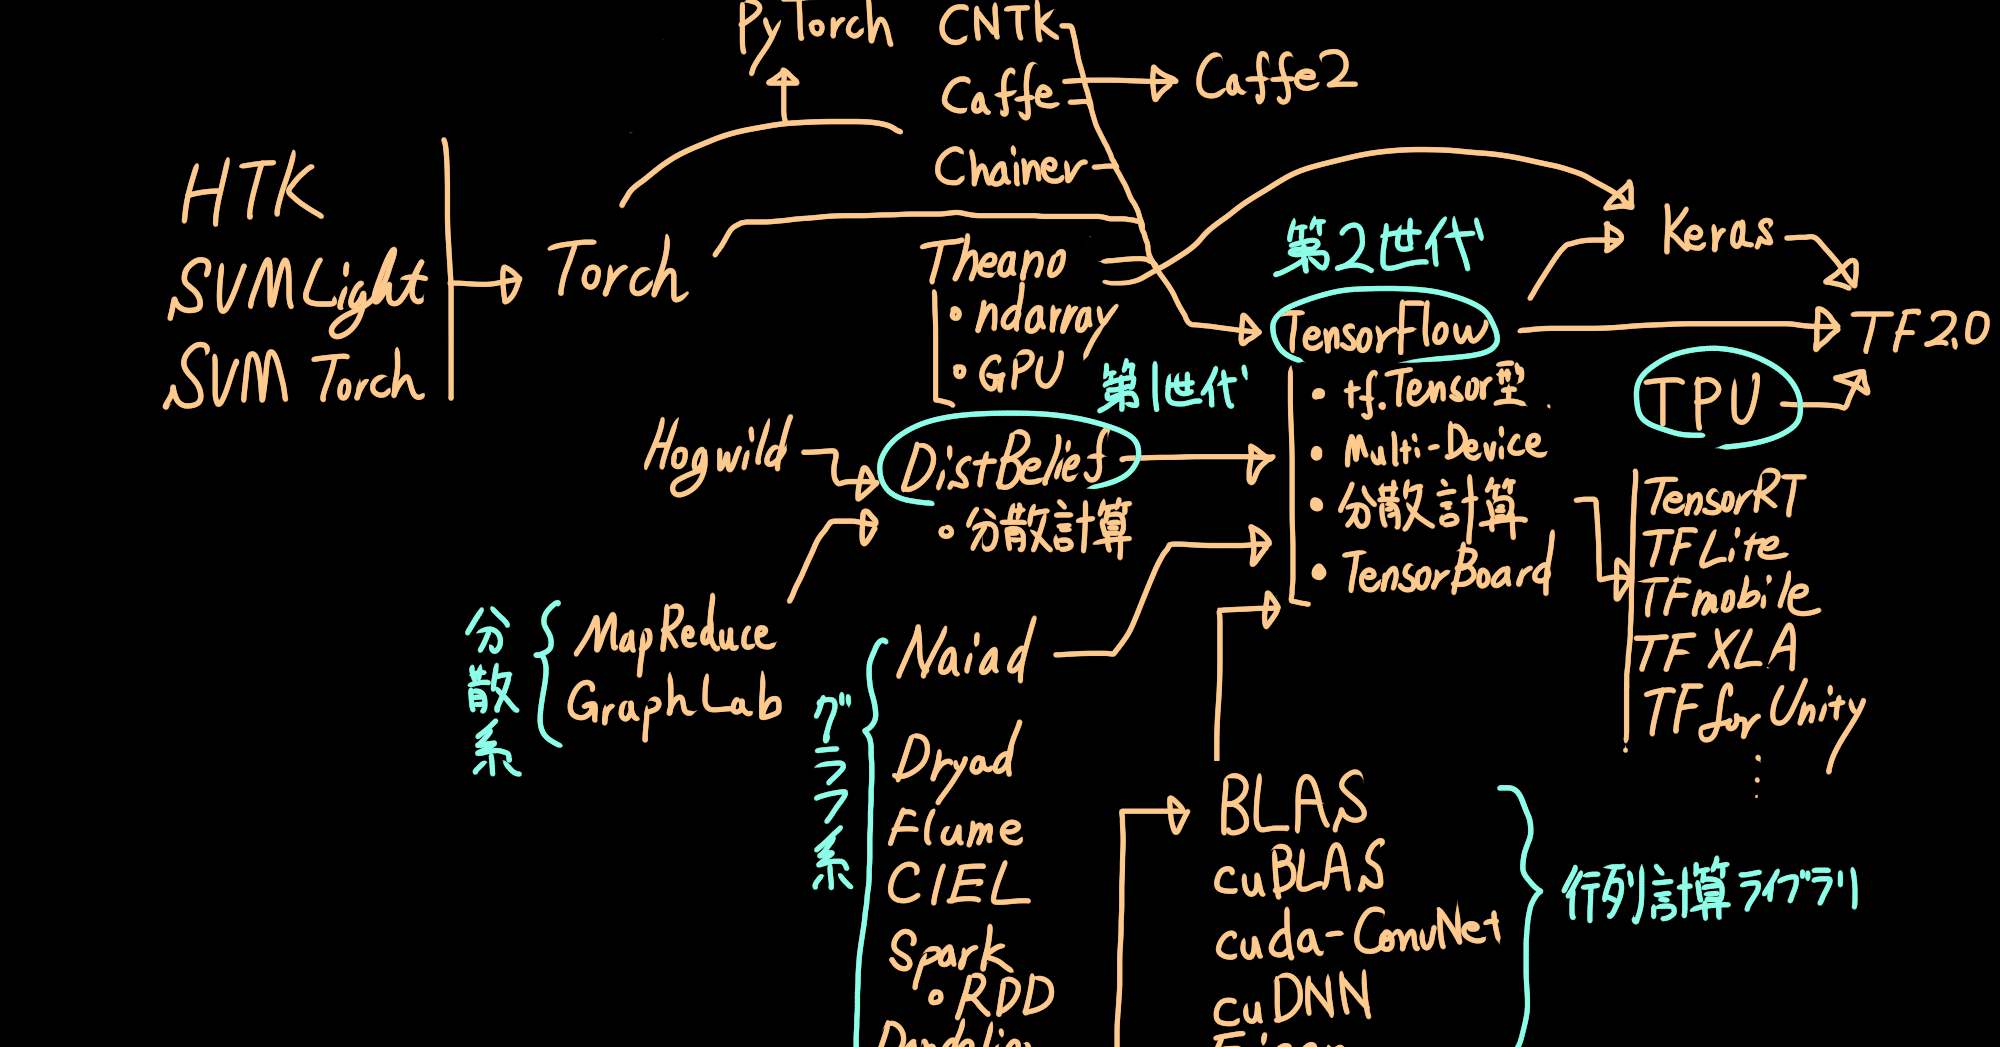 PyTorch
CNTK
Caffe
Caffe2
Chainer
HTK
SVMLight
SVM Torch
Torch
Theano
• ndarray
• GPU
第2世代
TensorFlow
• tf.Tensor型
• Multi-Device
• 分散計算
• TensorBoard
Keras
TF2.0
TPU
第1世代
Hogwild
DistBelief
• 分散計算
TensorRT
TFLite
TFmobile
TF XLA
TF for Unity
分散系
MapReduce
GraphLab
グラフ系
Naiad
Dryad
Flume
CIEL
Spark
• RDD
BLAS
cuBLAS
cuda-ConvNet
cuDNN
行列計算ライブラリ